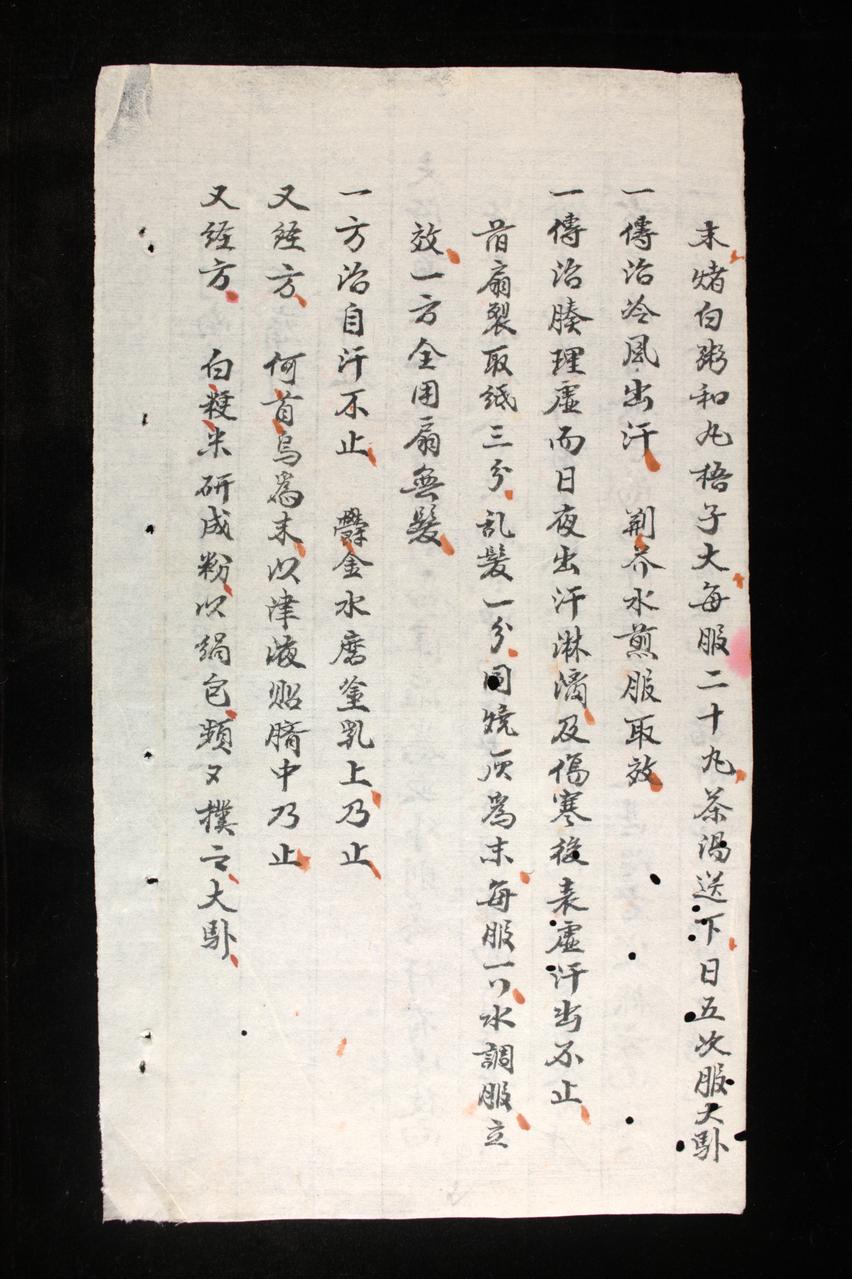 末煮白粥和丸梧子大每服二十九茶湯送下日五次服大馭
一傳治冷風出汗 荆芥水煎服取效
一傳治腠理虛而日夜出汗淋漓及傷寒後表虛汗出不止
蒲扇裂取紙三分乱髮一分同燒灰為末每服一水調服立
效一方全用扇無髮
一方治自汗不止 欝金水磨塗乳上乃止
又経方 何首烏為末以津液貼臍中乃止
又経方 白粳米研成粉以絹包頻〻撲云大馭